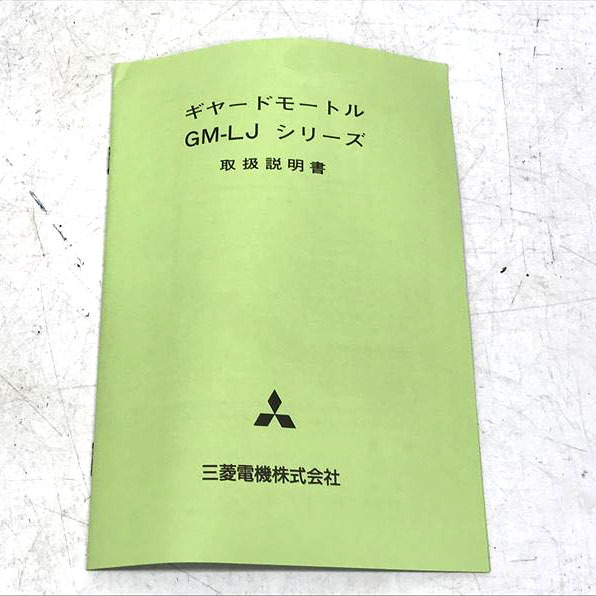 ギヤードモートル
GM-LJ シリーズ
取扱説明書
三菱電機株式会社